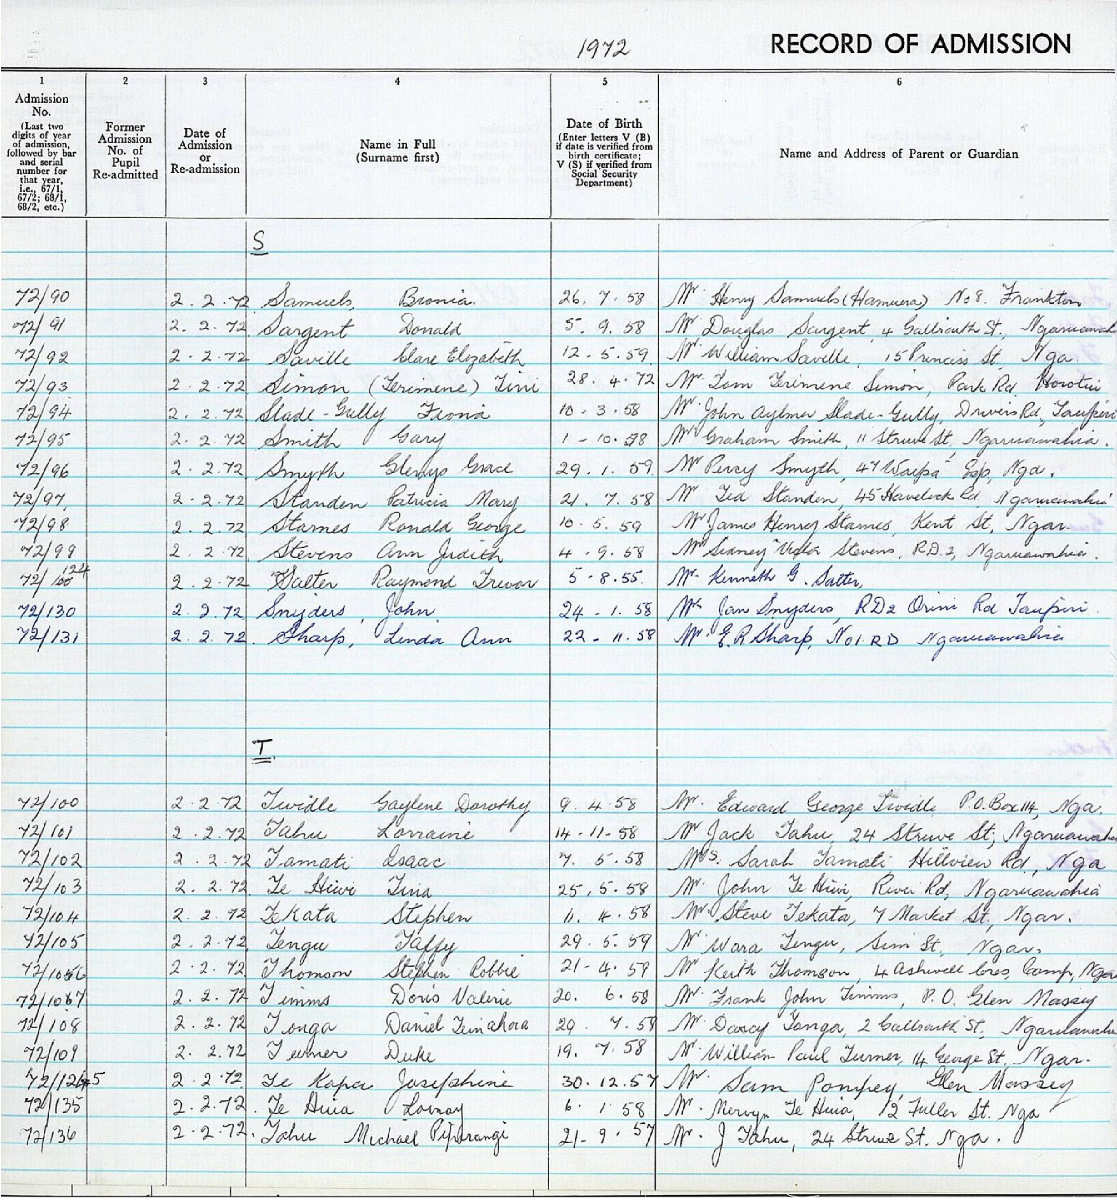 1972 RECORD OF ADMISSION
1 2 3 4 5 6
Admission No. (Last two digits of year of admission, followed by bar and serial number for that year, i.e., 67/1, 67/2; 68/1, 68/2, etc.)
Former Admission No. of Pupil Re-admitted
Date of Admission or Re-admission
Name in Full (Surname first)
Date of Birth (Enter letters V (B) if date is verified from birth certificate; V (S) if verified from Social Security Department)
Name and Address of Parent or Guardian
S
72/90 2.2.72 Samuels, Bronia 26.7.58 Mr. Henry Samuels (Hamuera) No 8. Frankton
72/91 2.2.72 Sargent Donald 5.9.58 Mr Douglas Sargent, 4 Galbraith St,
72/92 2.2.72 Saville Clare Elizabeth 12.5.59 Mr William Saville, 15 Princess St, Nga.
72/93 2.2.72 Simon (Terimene) Tini 28.4.72 Mr Tom Terimene Simon, Park Rd Horotiu
72/94 2.2.72 Slade-Gully Fiona 10.3.58 Mr John Aylmer Slade-Gully, Drivers Rd, Taupiri
72/95 2.2.72 Smith Gary 1-10.58 Mr Graham Smith, 11 Struwe St, Ngaruawahia.
72/96 2.2.72 Smyth Glenys Grace 29.1.59 Mr Percy Smyth, 47 Waipa Esp, Nga.
72/97 2.2.72 Standen Patricia Mary 21.7.58 Mr Ted Standen, 45 Havelock Rd, Ngaruawahia
72/98 2.2.72 Starnes Ronald George 10.5.59 Mr James Henry Starnes, Kent St, Ngar.
72/99 2.2.72 Stevens Ann Judith 4.9.58 Mr Sidney Victor Stevens, R.D.2, Ngaruawahia.
72/124 2.2.72 Salter Raymond Trevor 5-8.55. Mr. Kenneth G. Salter.
72/130 2.2.72 Snyders, John 24-1.58 Mr Jan Snyders, RD2 Orini Rd Taupiri.
72/131 2.2.72 Sharp, Linda Ann 22-11.58 Mr E.R Sharp, No1 RD Ngaruawahia
T
72/100 2.2.72 Twidle Gaylene Dorothy 9.4.58 Mr. Edward George Twidle P.O. Box 114, Nga.
72/101 2.2.72 Tahu Lorraine 14-11-58 Mr Jack Tahu, 24 Struwe St, Ngaruawahia
72/102 2.2.72 Tamati Isaac 7.5.58 Mrs. Sarah Tamati Hillview Rd., Nga
72/103 2.2.72 Te Hiwi Tina 25.5.58 Mr. John Te Hiwi, River Rd, Ngaruawahia
72/104 2.2.72 Tekata Stephen 11.4.58 Mr. Steve Tekata, 7 Market St, Ngar.
72/105 2.2.72 Tengu Taffy 29.5.59 Mr. Wara Tengu, Sim St, Ngar.
72/106 2.2.72 Thomson Stephen Robbie 21-4.59 Mr Keith Thomson, 4 Ashwell Cres, Camp, Nga
72/107 2.2.72 Timms Doris Valerie 20.6.58 Mr. Frank John Timms, P.O. Glen Massey
72/108 2.2.72 Tonga Daniel 29.7.59 Mr. Darcy Tonga, 2 Galbraith St. Ngaruawahia
72/109 2.2.72 Turner Duke 19.7.58 Mr. William Paul Turner, 14 George St, Ngar.
72/125 2.2.72 Te Kapa Josephine 30.12.57 Mr. Sam Pompey, Glen Massey
72/135 2.2.72. Te Huia Lornay 6.1.58 Mr. Mervyn Te Huia, 12 Fuller St. Nga
72/136 2.2.72. Tahu Michael Piripirangi 21-9.57 Mr. J Tahu, 24 Struwe St. Nga.